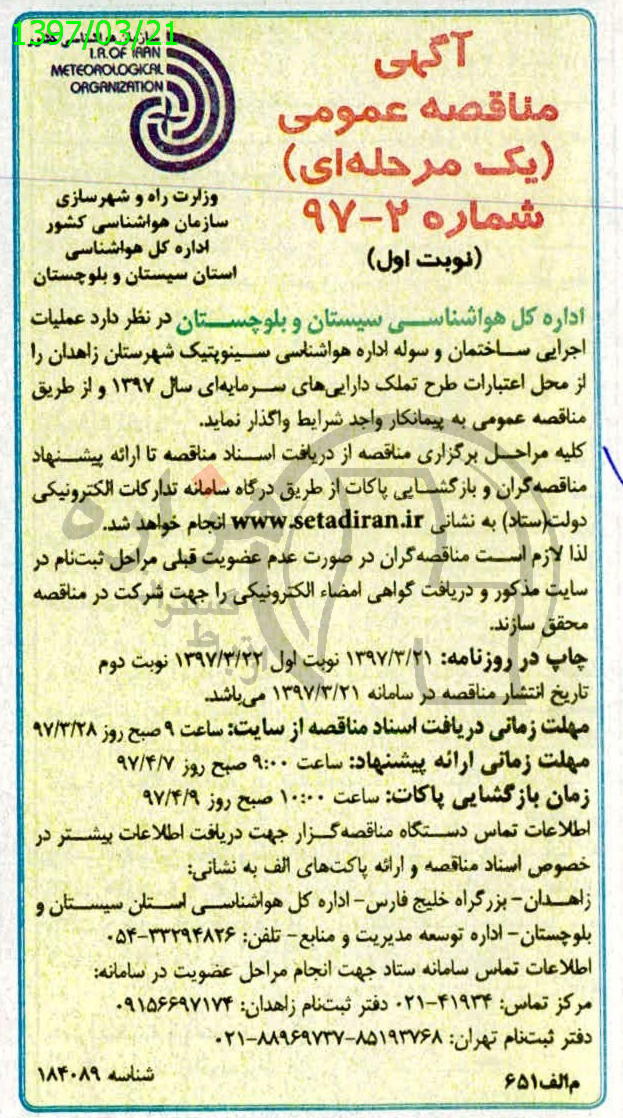 1397/03/21
سازمان هواشناسی کشور
I.R.OF IRAN
METEOROLOGICAL
ORGANIZATION
وزارت راه و شهرسازی
سازمان هواشناسی کشور
اداره کل هواشناسی
استان سیستان و بلوچستان
آگهی
مناقصه عمومی
(یک مرحله‌ای)
شماره ۲-۹۷
(نوبت اول)
اداره کل هواشناسی سیستان و بلوچستان در نظر دارد عملیات
اجرایی ساختمان و سوله اداره هواشناسی سینوپتیک شهرستان زاهدان را
از محل اعتبارات طرح تملک دارایی‌های سرمایه‌ای سال ۱۳۹۷ و از طریق
مناقصه عمومی به پیمانکار واجد شرایط واگذار نماید.
کلیه مراحل برگزاری مناقصه از دریافت اسناد مناقصه تا ارائه پیشنهاد
مناقصه‌گران و بازگشایی پاکات از طریق درگاه سامانه تدارکات الکترونیکی
دولت(ستاد) به نشانی www.setadiran.ir انجام خواهد شد.
لذا لازم است مناقصه‌گران در صورت عدم عضویت قبلی مراحل ثبت‌نام در
سایت مذکور و دریافت گواهی امضاء الکترونیکی را جهت شرکت در مناقصه
محقق سازند.
چاپ در روزنامه: ۱۳۹۷/۳/۲۱ نوبت اول ۱۳۹۷/۳/۲۲ نوبت دوم
تاریخ انتشار مناقصه در سامانه ۱۳۹۷/۳/۲۱ می‌باشد.
مهلت زمانی دریافت اسناد مناقصه از سایت: ساعت ۹ صبح روز ۹۷/۳/۲۸
مهلت زمانی ارائه پیشنهاد: ساعت ۹:۰۰ صبح روز ۹۷/۴/۷
زمان بازگشایی پاکات: ساعت ۱۰:۰۰ صبح روز ۹۷/۴/۹
اطلاعات تماس دستگاه مناقصه‌گزار جهت دریافت اطلاعات بیشتر در
خصوص اسناد مناقصه و ارائه پاکت‌های الف به نشانی:
زاهدان- بزرگراه خلیج فارس- اداره کل هواشناسی استان سیستان و
بلوچستان- اداره توسعه مدیریت و منابع- تلفن: ۳۳۲۹۴۸۲۶-۰۵۴
اطلاعات تماس سامانه ستاد جهت انجام مراحل عضویت در سامانه:
مرکز تماس: ۴۱۹۳۴-۰۲۱ دفتر ثبت‌نام زاهدان: ۰۹۱۵۶۶۹۷۱۷۴
دفتر ثبت‌نام تهران: ۸۵۱۹۳۷۶۸-۸۸۹۶۹۷۳۷-۰۲۱
م‌الف۶۵۱
شناسه ۱۸۴۰۸۹